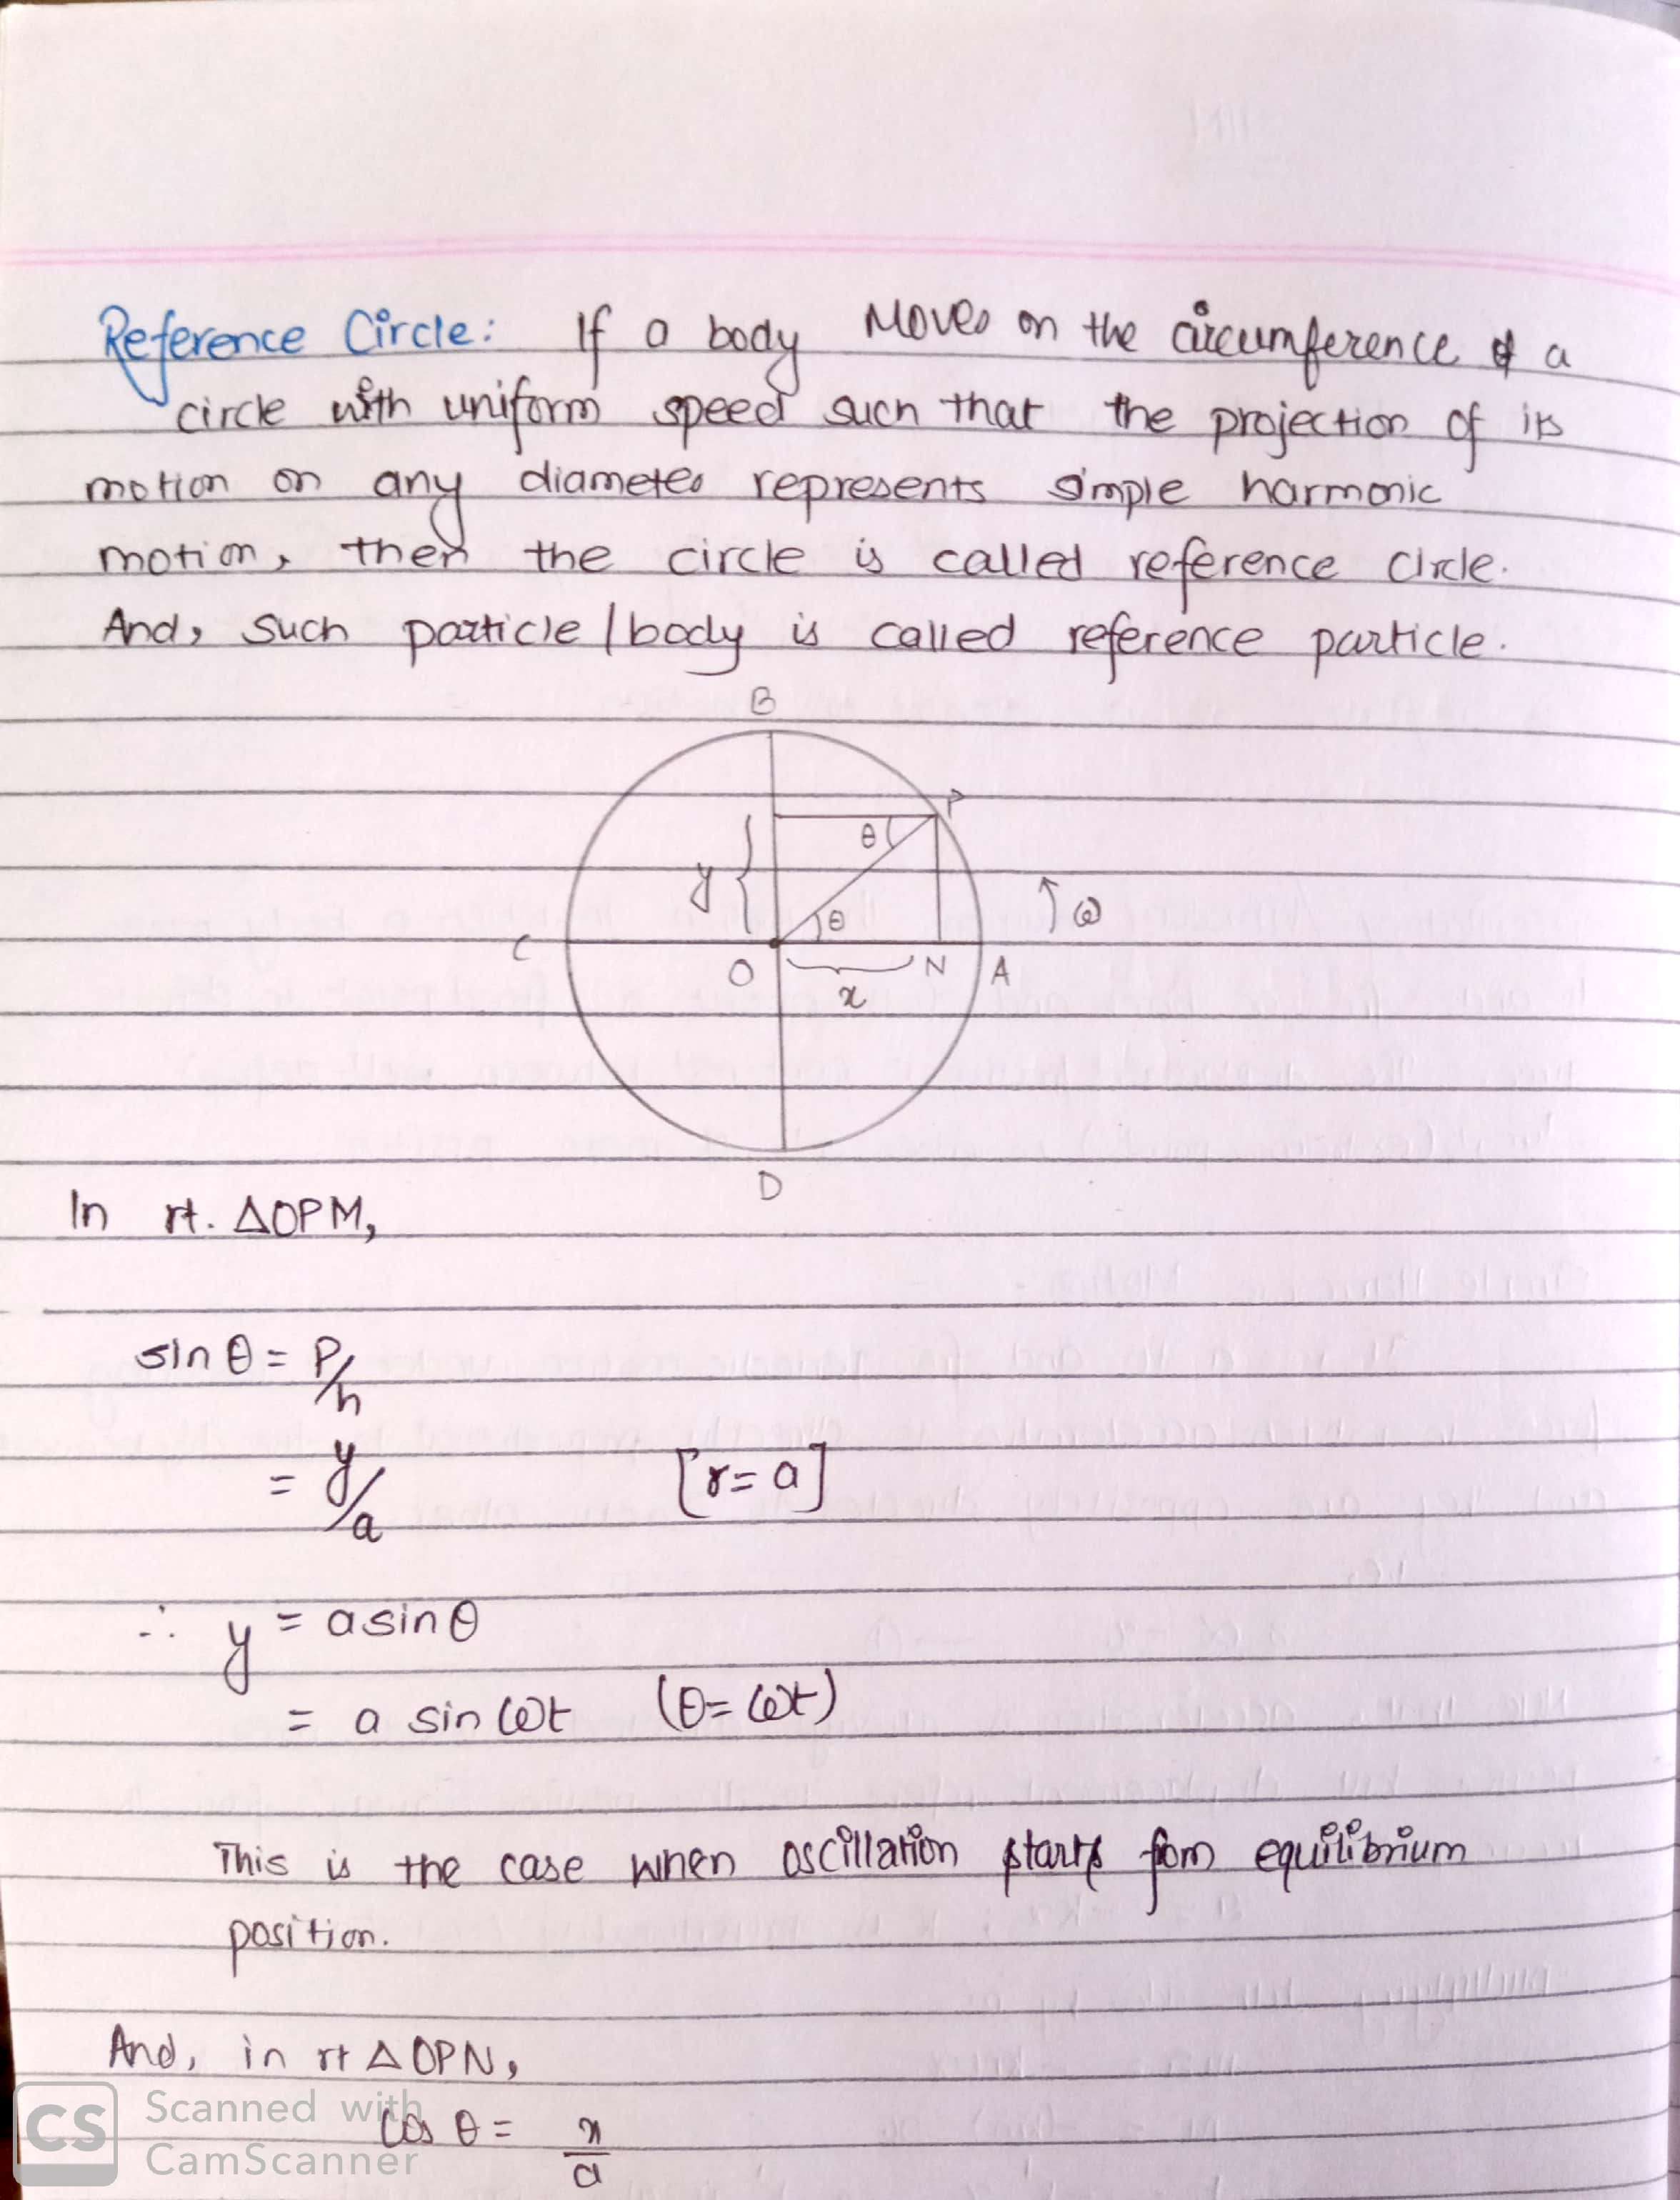 Reference Circle: If a body moves on the circumference of a
circle with uniform speed such that the projection of its
motion on any diameter represents simple harmonic
motion, then the circle is called reference circle.
And, such particle / body is called reference particle.
B
P
θ
y
θ
ω
C
O
N
A
x
D
In rt. △OPM,
sin θ = P/h
= y/a [r = a]
∴ y = a sin θ
= a sin ωt (θ = ωt)
This is the case when oscillation starts from equilibrium
position.
And, in rt △ OPN,
cos θ = x/a
CS Scanned with
CamScanner